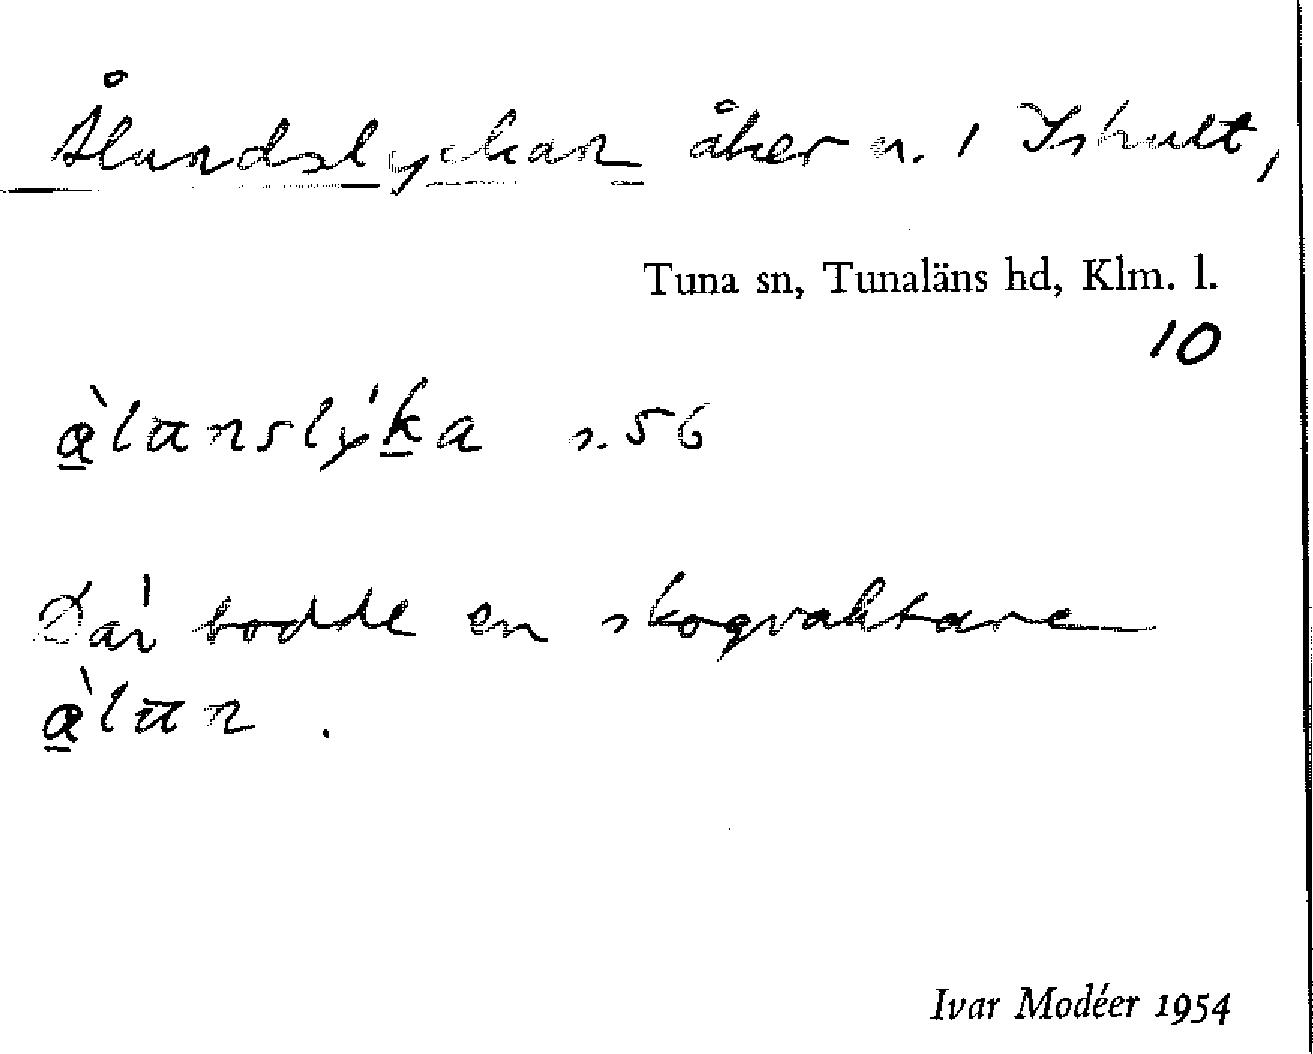 Ålundslyckan åker n. 1 Ishult,
Tuna sn, Tunaläns hd, Klm. l.
10
à̱lunslýḵa s. 56
Där bodde en skogvaktare
à̱lun .
Ivar Modéer 1954